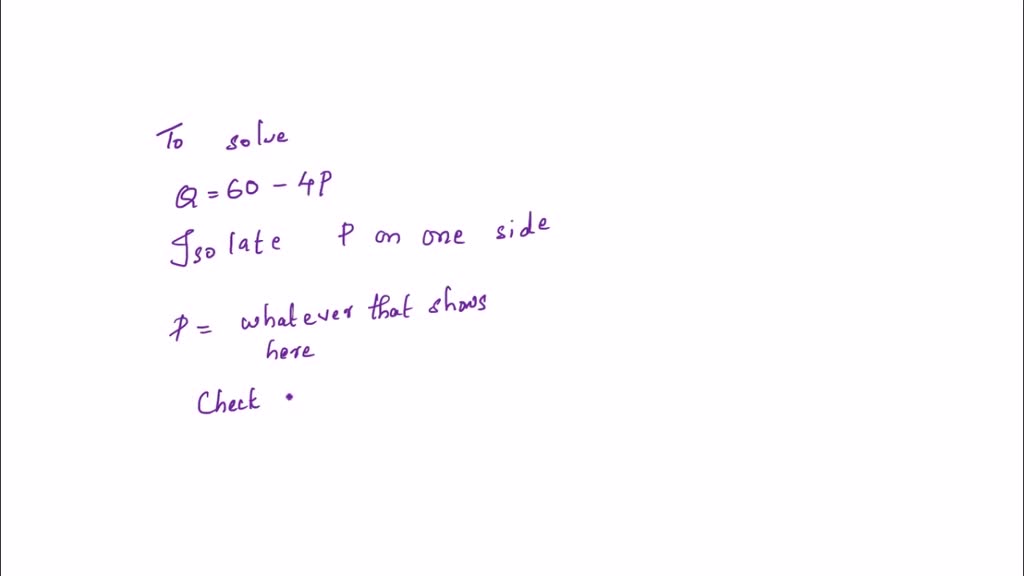 To solve
Q = 60 - 4P
Isolate P on one side
P = whatever that shows
here
Check •